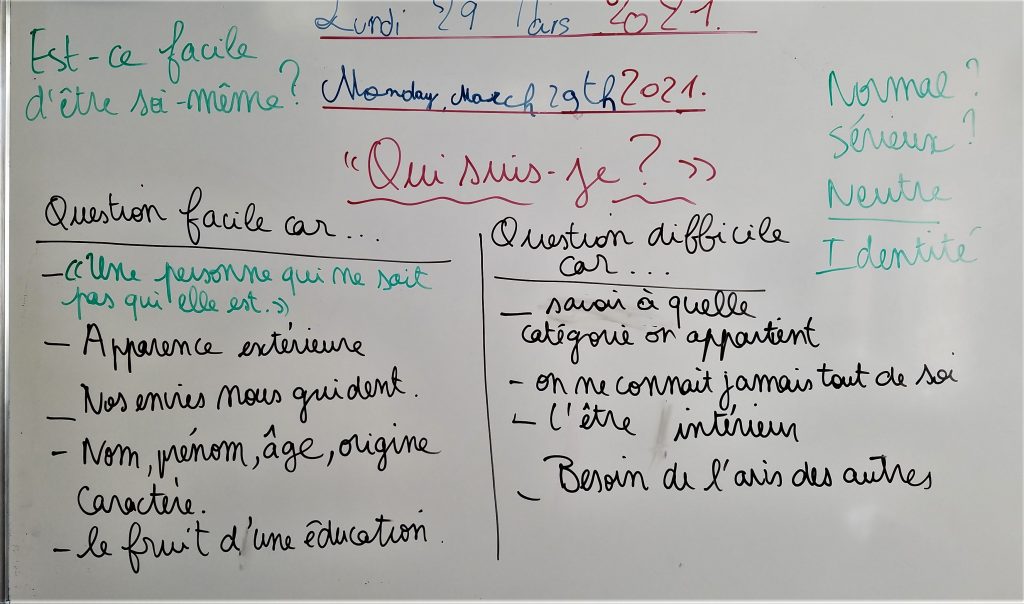 Lundi 29 Mars 2021.
Est-ce facile
d'être soi-même?
Monday, March 29th 2021.
Normal?
Sérieux?
Neutre
Identité
"Qui suis-je?"
Question facile car...
- "Une personne qui ne sait
pas qui elle est."
- Apparence extérieure
- Nos envies nous guident.
- Nom, prénom, âge, origine
Caractère.
- le fruit d'une éducation.
Question difficile
car...
- savoir à quelle
catégorie on appartient
- on ne connait jamais tout de soi
- l'être intérieur
- Besoin de l'avis des autres